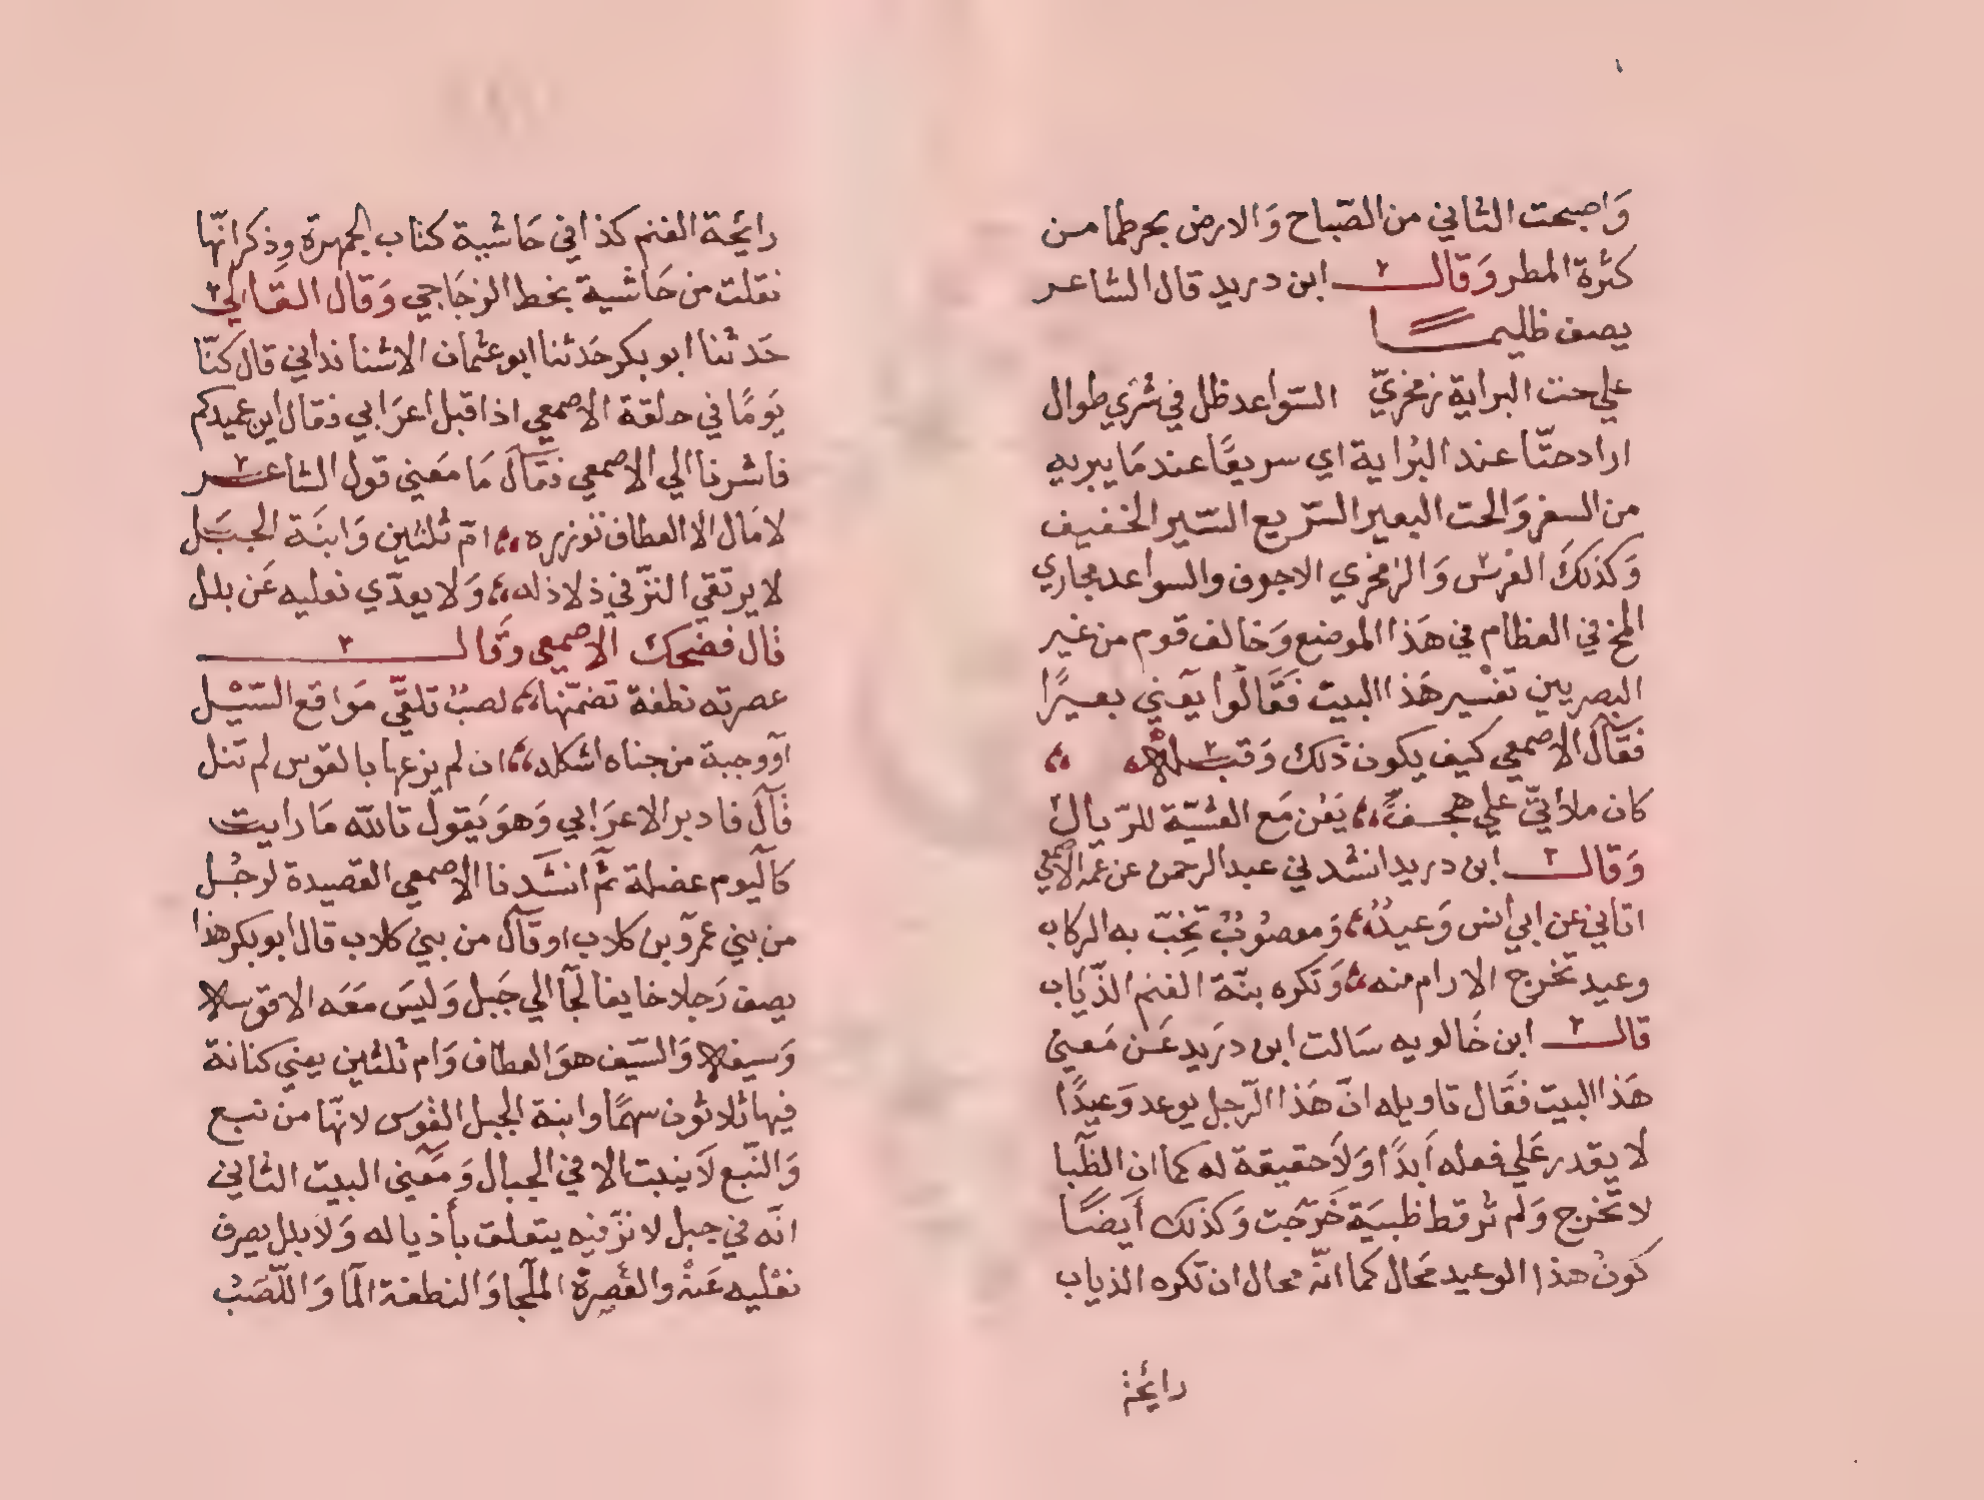 وَاصبحت الثاني من الصّباح وَالارض بحر طما من
كثرة المطر وَقال ابن دريد قال الشاعر
يصف ظليمًا
علي حت البراية زمخريّ السّواعد ظل في شري طوال
اراد حتّا عند البُراية اي سريعًا عند مَا يبريه
من السفر وَالحت البعير السّريع السّير الخفيف
وَكذلكَ الفرسْ وَالزمخري الاجوف والسواعد مجاري
المخ في العظام في هَذا الموضع وَخالف قوم من غير
البصريين تفسير هَذا البيت فَقَالوا يَعني بعيرًا
فَقَال الاصمعي كيف يكون ذلك وَقبله
كان ملائتيّ علي هجفٍّ يَعُن مَع العَشيّة للرّيال
وَقال ابن دريد انشدني عبد الرحمن عن عمه الاصمعي
اتاني عن ابي انس وَعيدٌ وَمعصُوبٌ تَخِبّ به الركاب
وعيد تخرج الارام منه وَتكره بنّة الغنم الذّياب
قال ابن خَالويه سَالت ابن دريد عَن مَعني
هَذا البيت فقَال تاويله انّ هَذا الرّجل يوعد وَعيدًا
لا يقدر عَلي فعله اَبدًا وَلاَ حقيقة له كما ان الظّبا
لا تخرج وَلم تُر قط ظبيَة خَرَجت وَكذلك أيضًا
كَونُ هذا الوعيد مَحال كما انّه محال ان تكره الذياب
رائحة
رائحة الغنم كذا في حَاشية كتاب الجمهرة وذكر انّها
نقلت من حَاشية بخط الزجَاجي وَقال القَالي
حَدثنا ابو بكر حَدثنا ابو عثمان الاشنانداني قال كنّا
يَومًا في حلقة الاصمعي اذ اقبل اعرَابي فقال اين عميدكم
فاشرنا الي الاصمعي فقَالَ مَا مَعني قول الشاعر
لا مَال الا العطاف تؤزره امّ ثلثين وَابنَة الجبَل
لا يرتقي النزّ في ذلاذله وَلا يعدّي نعليه عَن بلل
قال فضحك الاصمعي وَقال
عصرته نطفة تضمّنها لصبٌ تلقّي مَواقع السّيْل
اَو وجبة من جناه اشكله ان لم يرعها بالقوس لم تنل
قَالَ فادبر الاعرَابي وَهوَ يَقول تالله مَا رايت
كاَليوم عضلة ثمّ انشَدنا الاصمعي القصيدة لرجُل
من بني عمرو بن كلاب او قالَ من بني كلاب قال ابو بكر هذا
يصف رَجلا خايفا لجَا الي جَبل وَليسَ مَعَه الا قوسه
وَسيفه وَالسّيف هوَ العطاف وَام ثلثين يعني كنانة
فيها ثلاثون سهمًا وابنة الجبل القَوسَ لانهّا من نبع
وَالنّبع لاَ ينبت الا في الجبال وَمَعني البيت الثاني
انّه في جبل لا نزّ فيه يتعلق بأذياله وَلا بلل يصرف
نعْليه عَنْه والعُصرةَ المَلجا وَالنطفة المَا وَاللّصَبُ